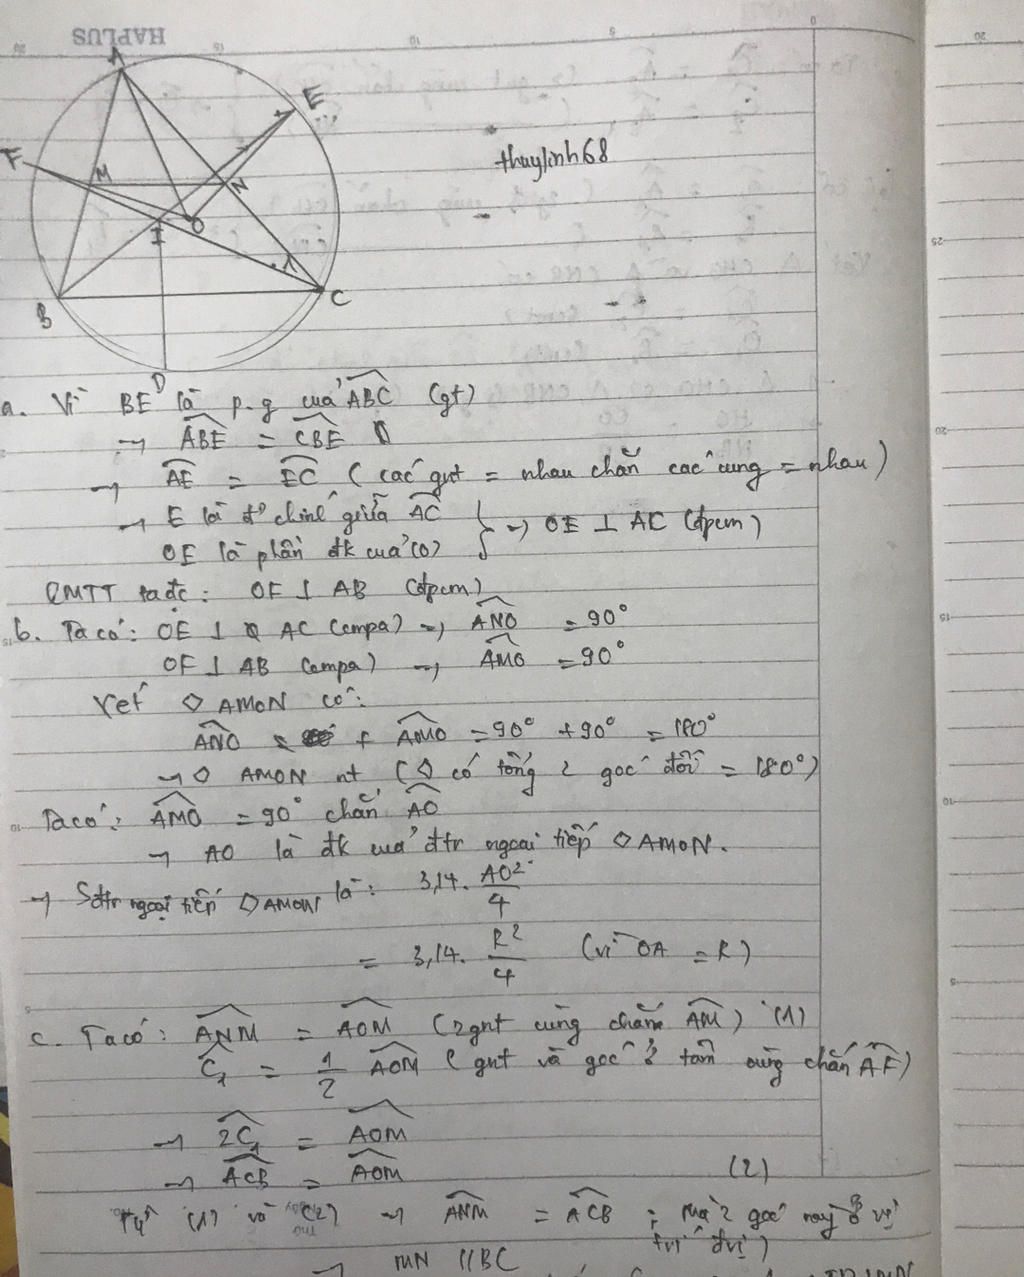 HAPLUS
A
E
F
thuylinh68
M
N
O
I
B
C
D
a. Vì BE là p.g của ABC (gt)
→ ABE = CBE
→ AE = EC (các gnt = nhau chắn các cung = nhau)
→ E là đ' chính giữa AC
OE là phần đk của (O) } → OE ⊥ AC (đpcm)
CMTT ta đc: OF ⊥ AB (đpcm)
b. Ta có: OE ⊥ AC (cmpa) → ANO = 90°
OF ⊥ AB (cmpa) → AMO = 90°
Xét ◇ AMON có:
ANO + AMO = 90° + 90° = 180°
→ ◇ AMON nt (◇ có tổng 2 góc đối = 180°)
Ta có: AMO = 90° chắn AO
→ AO là đk của đtr ngoại tiếp ◇ AMON.
→ Sđtr ngoại tiếp ◇ AMON là: 3,14. AO²/4
= 3,14. R²/4 (vì OA = R)
c. Ta có: ANM = AOM (2gnt cùng chắn AM) (1)
C₁ = 1/2 AOM (gnt và góc ở tâm cùng chắn AF)
→ 2C₁ = AOM
→ ACB = AOM (2)
Từ (1) và (2) → ANM = ACB ; Mà 2 góc này ở vị
trí đvị)
→ MN // BC